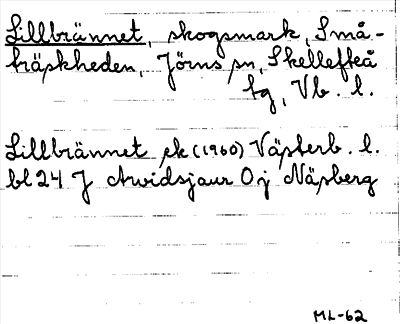 Lillbrännet, skogsmark, Små-
träskheden, Jörns sn, Skellefteå
tg, Vb. l.
Lillbrännet ek (1960) Västerb. l.
bl 24 J Arvidsjaur Oj Näsberg
ML-62